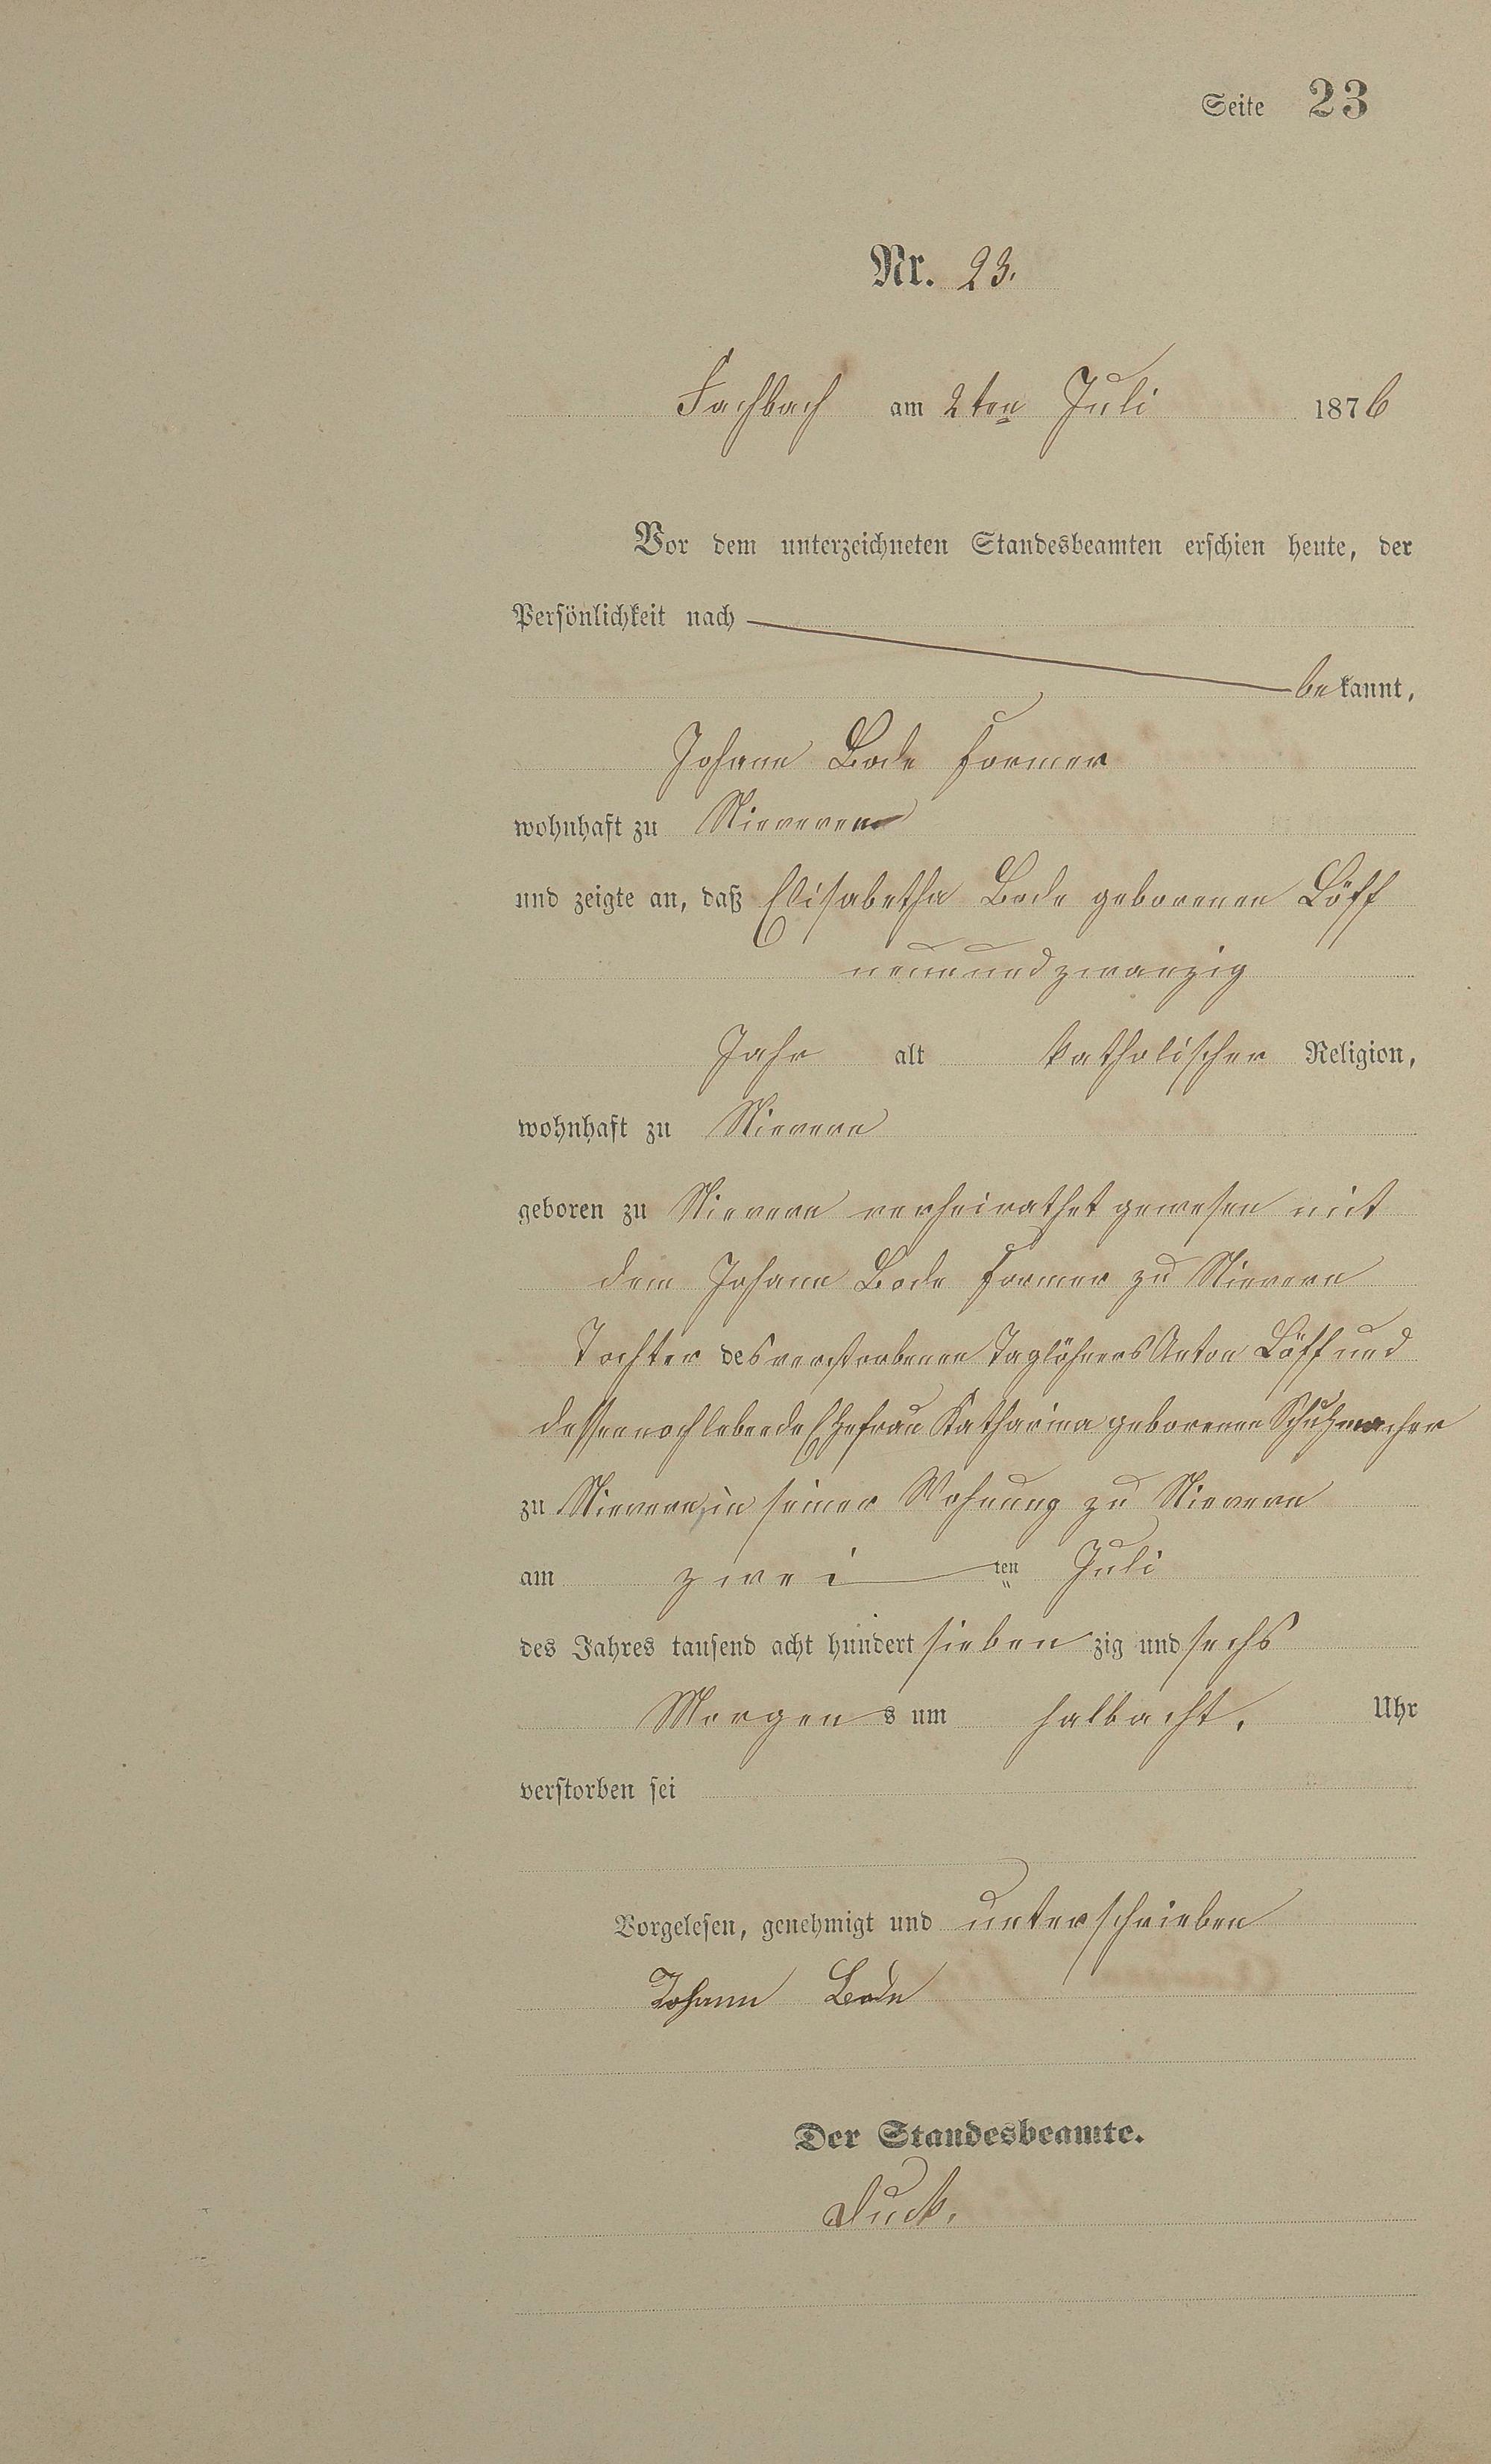 Seite 23
Nr. 23.
Fachbach am 2ten Juli 1876
Vor dem unterzeichneten Standesbeamten erschien heute, der
Persönlichkeit nach
bekannt,
Johann Bode Former
wohnhaft zu Nieveren
und zeigte an, daß Elisabetha Bode geborenen Löff
neunundzwanzig
Jahr alt katholischer Religion,
wohnhaft zu Nievern
geboren zu Nievern verheirathet gewesen mit
dem Johann Bode Former zu Nievern
Tochter des verstorbenen Taglöhners Anton Löff und
dessen noch lebende Ehefrau Katharina geborenen Schuhmacher
zu Nievern, in seiner Wohnung zu Nievern
am zwei ten Juli
des Jahres tausend acht hundert sieben zig und sechs
Morgen s um halbacht. Uhr
verstorben sei
Vorgelesen, genehmigt und unterschrieben
Johann Bode
Der Standesbeamte.